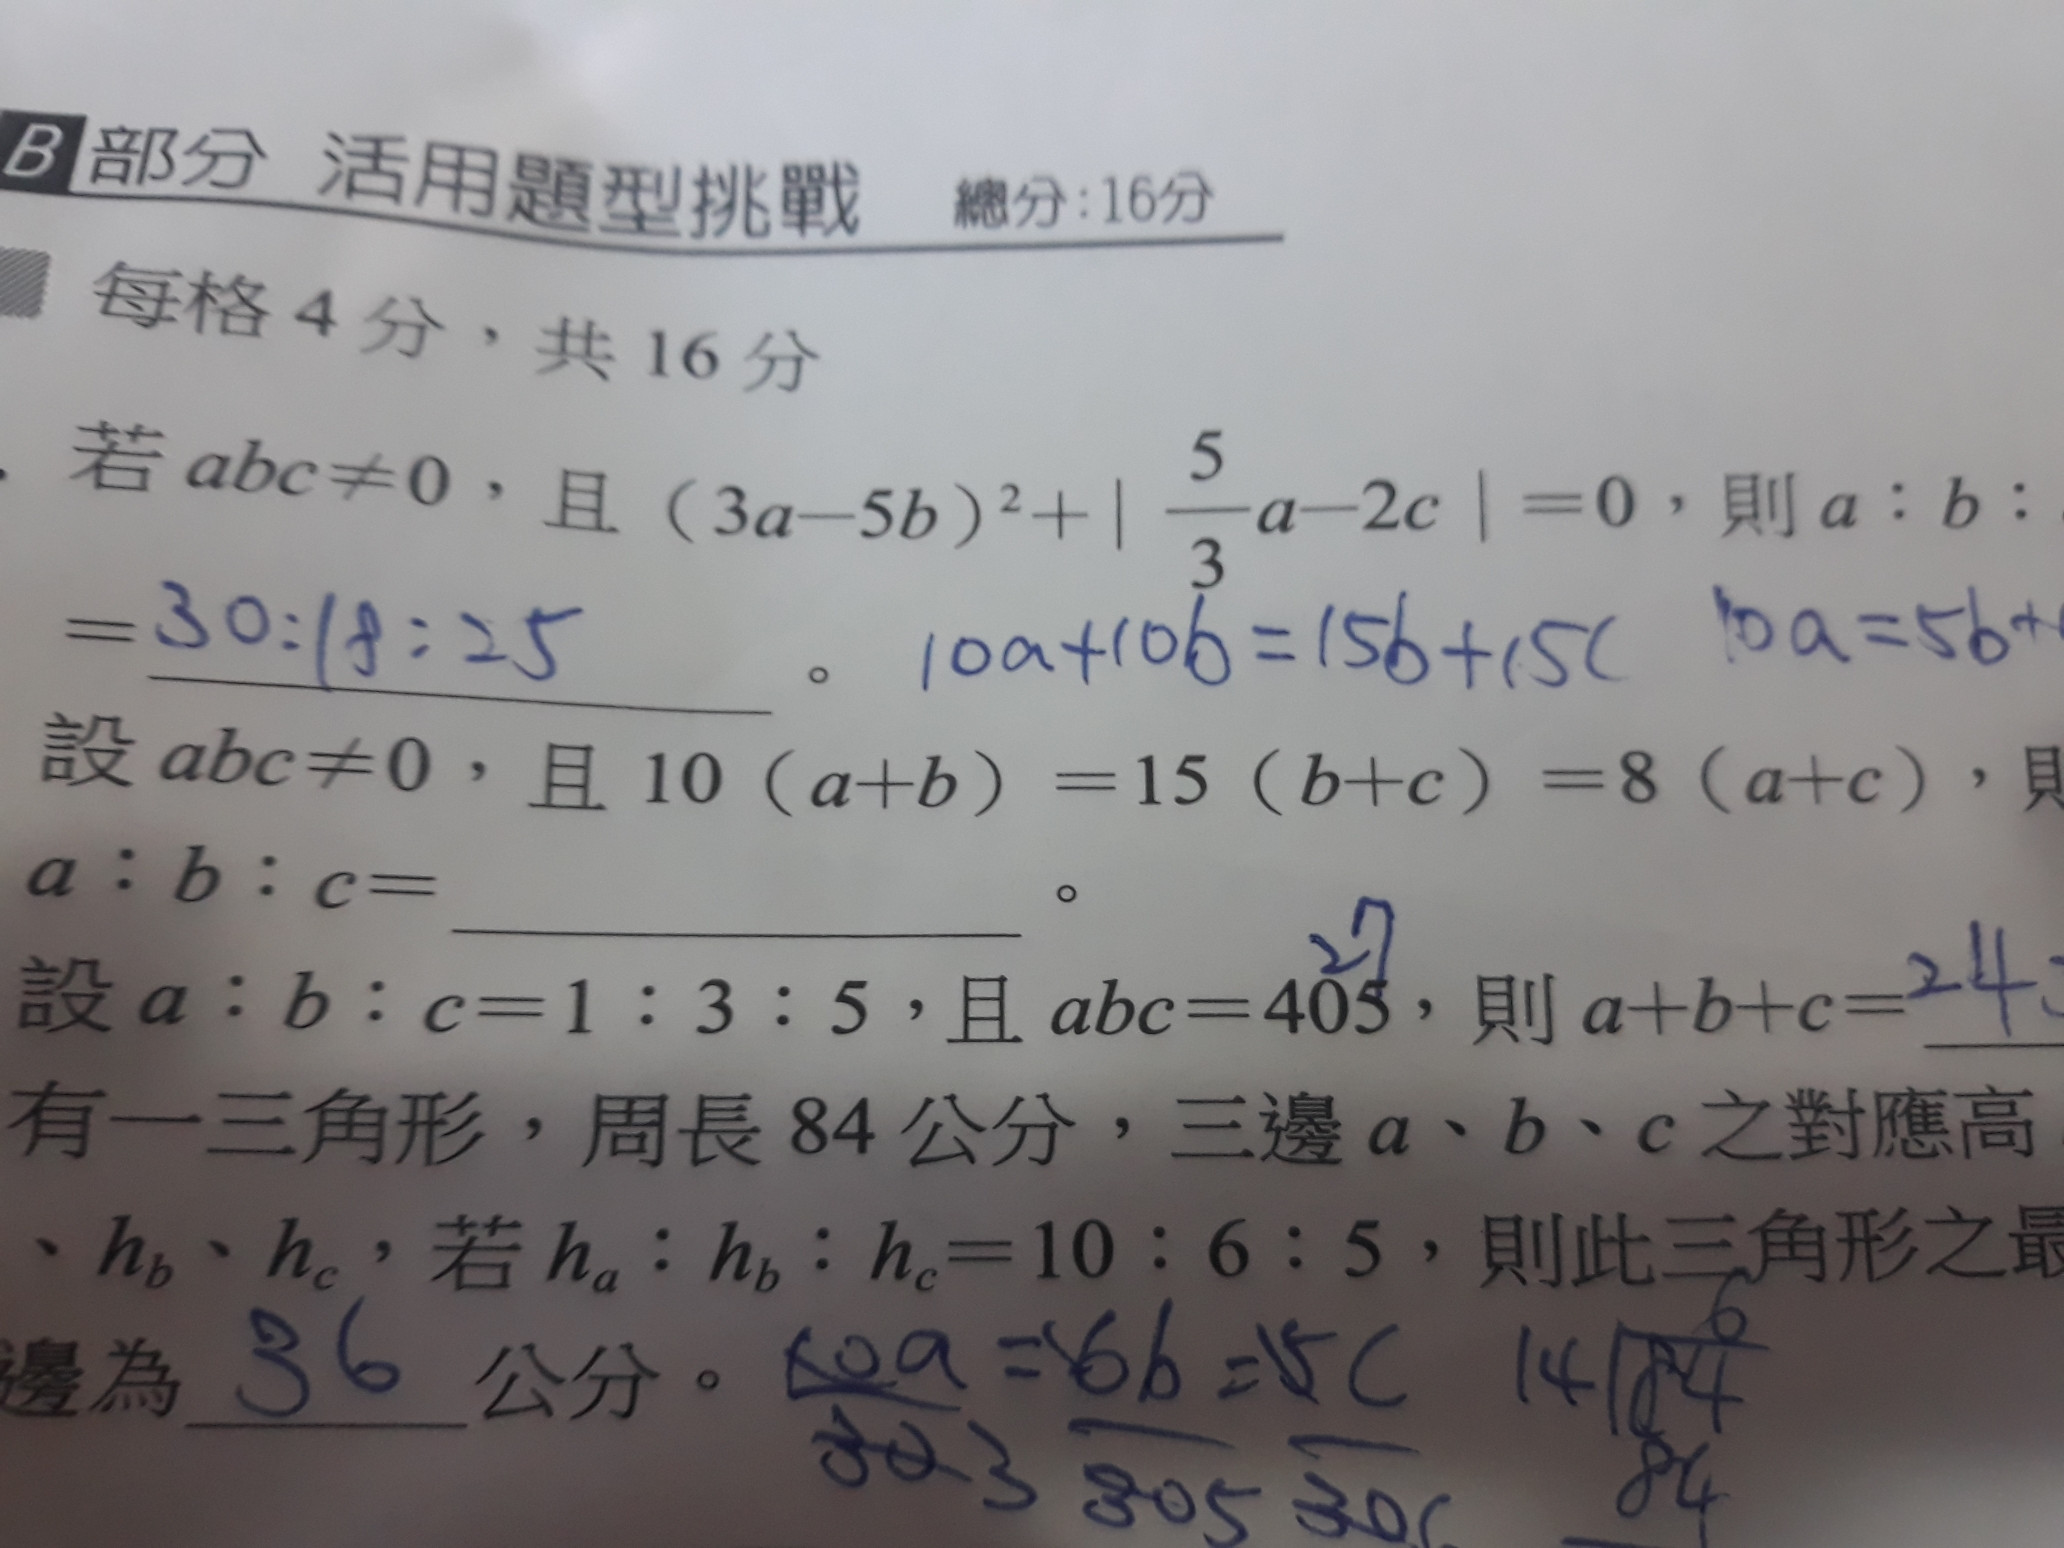 B 部分 活用題型挑戰 總分:16分
每格 4 分，共 16 分
. 若 abc≠0，且（3a−5b）²+| 5/3 a−2c |=0，則 a：b：
=30:18:25。 10a+10b=15b+15c 10a=5b+
設 abc≠0，且 10（a+b）=15（b+c）=8（a+c），
a：b：c=。
27
設 a：b：c=1：3：5，且 abc=405，則 a+b+c=243
有一三角形，周長 84 公分，三邊 a、b、c 之對應高
、hb、hc，若 ha：hb：hc=10：6：5，則此三角形之最
6
邊為 36 公分。 10a=6b=5c 14 84
3 5 84